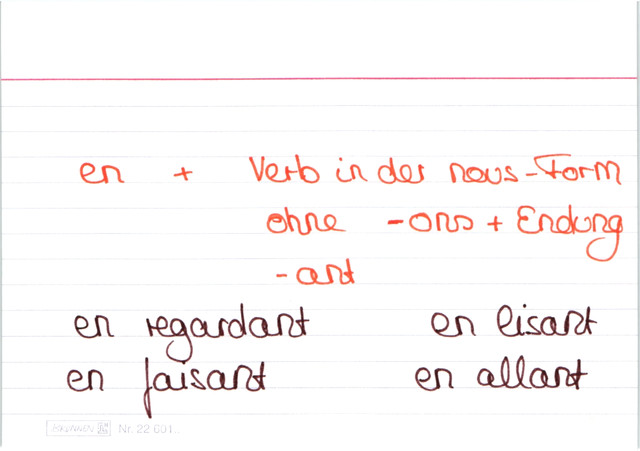 en + Verb in der nous-Form
ohne -ons + Endung
-ant
en regardant en lisant
en faisant en allant
BRUNNEN Nr. 22 601..